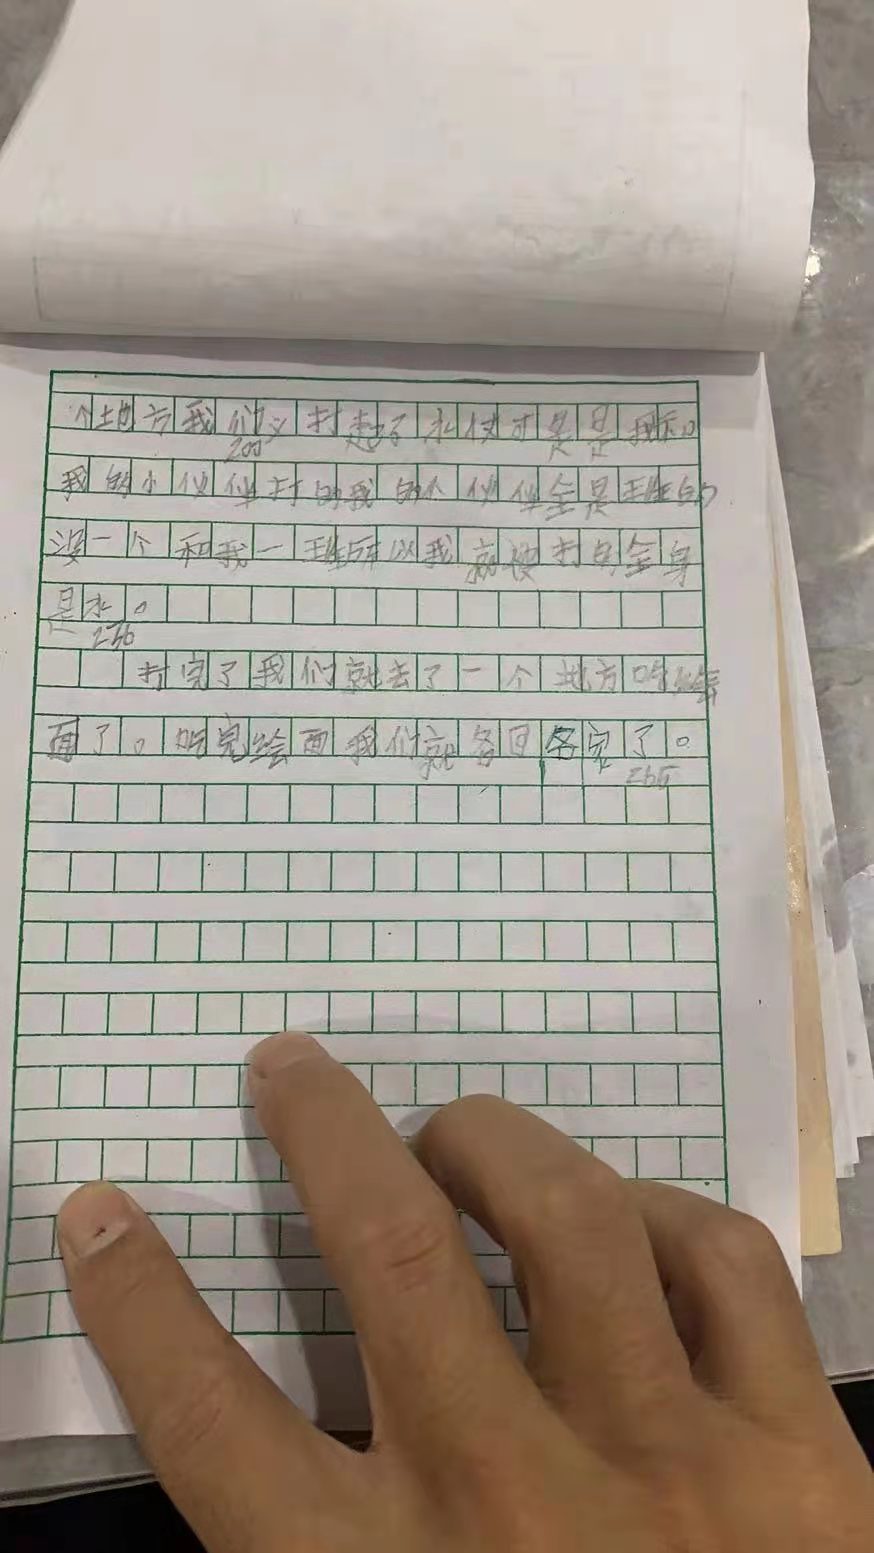 个地方我们又打起了水仗可是是我和
200
我的小伙伴打的我的小伙伴全是班的
没一个和我一班所以我就被打的全身
是水。
256
打完了我们就去了一个地方吃烩
面了。吃完烩面我们就各回各家了。
295